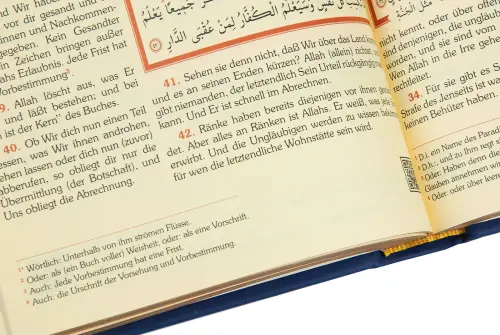 nd Wir haben
gesandt und
innen und Nachkommen-
geben. Kein Gesandter
Zeichen bringen außer
ahs Erlaubnis. Jede Frist hat
Vorbestimmung³.
39. Allah löscht aus, was Er
und läßt bestehen; und bei
n ist der Kern⁴ des Buches.
40. Ob Wir dich nun einen Teil
essen, was Wir ihnen androhen,
sehen lassen oder dich nun (zuvor)
abberufen, so obliegt dir nur die
Übermittlung (der Botschaft), und
Uns obliegt die Abrechnung.
نفس وسيعلم الكفار لمن عقبى الدار
41. Sehen sie denn nicht, daß Wir über das Land
und es an seinen Enden kürzen? Allah (allein) richtet,
gibt niemanden, der letztendlich Sein Urteil rückgängig
kann. Und Er ist schnell im Abrechnen.
42. Ränke haben bereits diejenigen vor ihnen
det. Aber alles an Ränken ist Allahs. Er weiß, was
erwirbt. Und die Ungläubigen werden zu wissen
für wen die letztendliche Wohnstätte sein wird.
1* Wörtlich: Unterhalb von ihm strömen Flüsse.
2 Oder: als (ein Buch voller) Weisheit, oder: als eine Vorschrift.
3 Auch: Jede Vorbestimmung hat eine Frist.
4 Auch: die Urschrift der Vorsehung und Vorbestimmung.
nicht kennt, oder über
sind denjenigen, die ungläubi
worden, und sie sind vom
Wen Allah in die Irre gehe
rechtleitet.
34. Für sie gibt es S
Strafe des Jenseits ist w
keinen Behüter haben.
1 D.i. ein Name des Parad
2 D.h.: und zu Ihm regt s
3 Oder: Haben denn die
Glauben annehmen wir
4 Oder: oder über leere